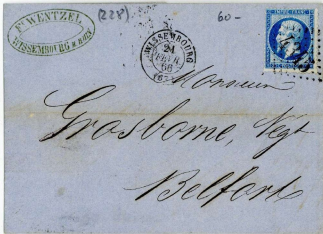 (228)
60-
Fs WENTZEL
WISSEMBOURG B. RHIN
WISSEMBOURG
21
FEVR.
66
(67)
EMPIRE FRANC
Monsieur
Grosborne, Negt
Belfort